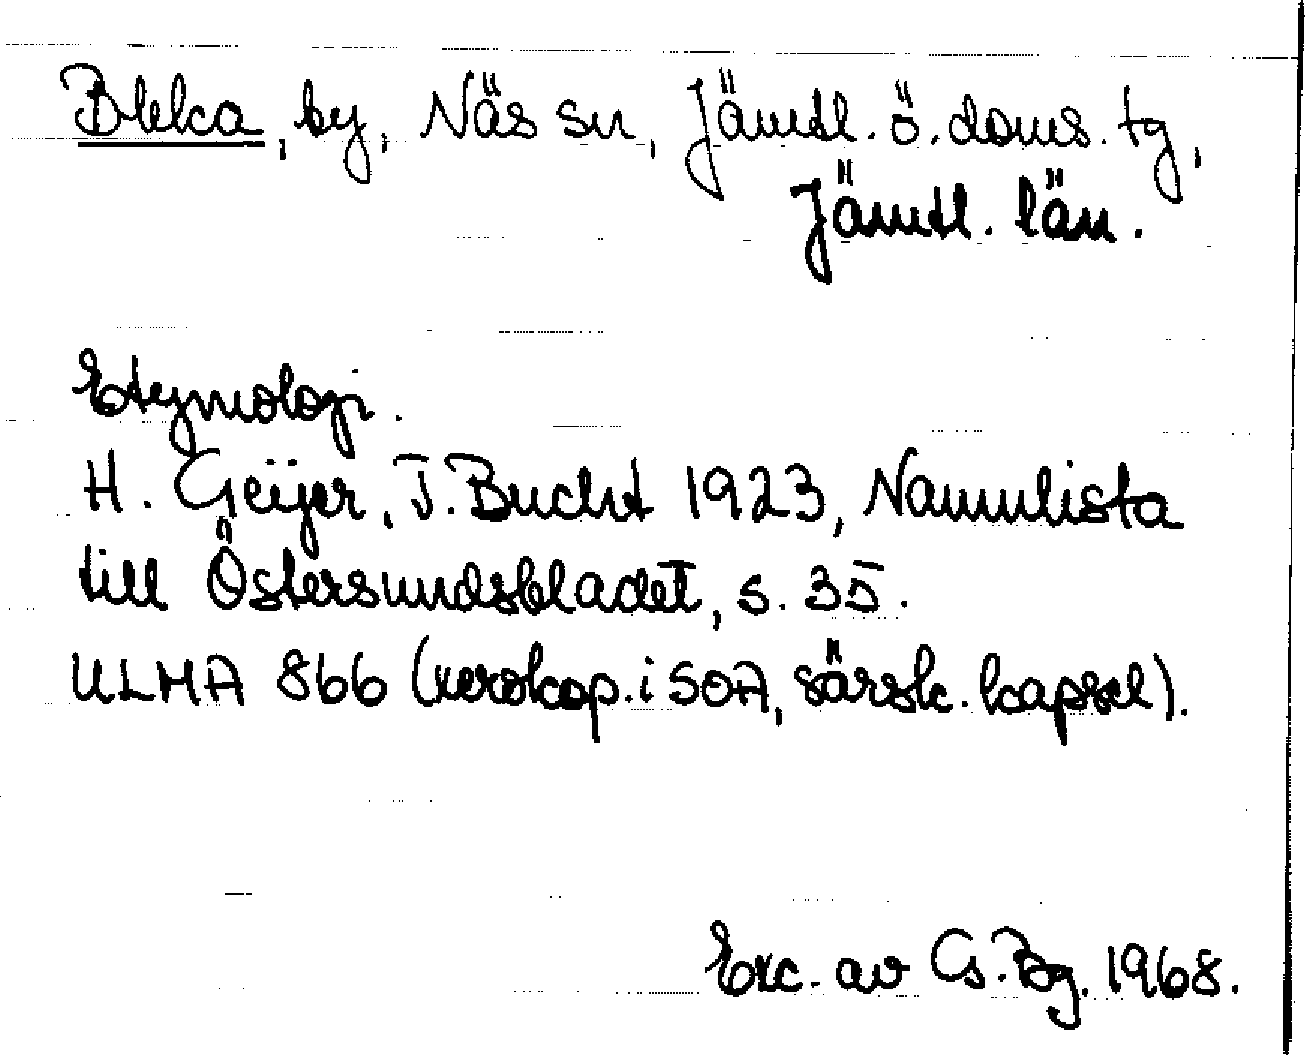 Bleka, by, Näs sn, Jämtl. ö. doms. tg,
Jämtl. län.
Etymologi.
H. Geijer, J. Bucht 1923, Namnlista
till Östersundsbladet, s. 35.
ULMA 866 (xerokop. i SOA, särsk. kapsel).
Exc. av G. Bg. 1968.